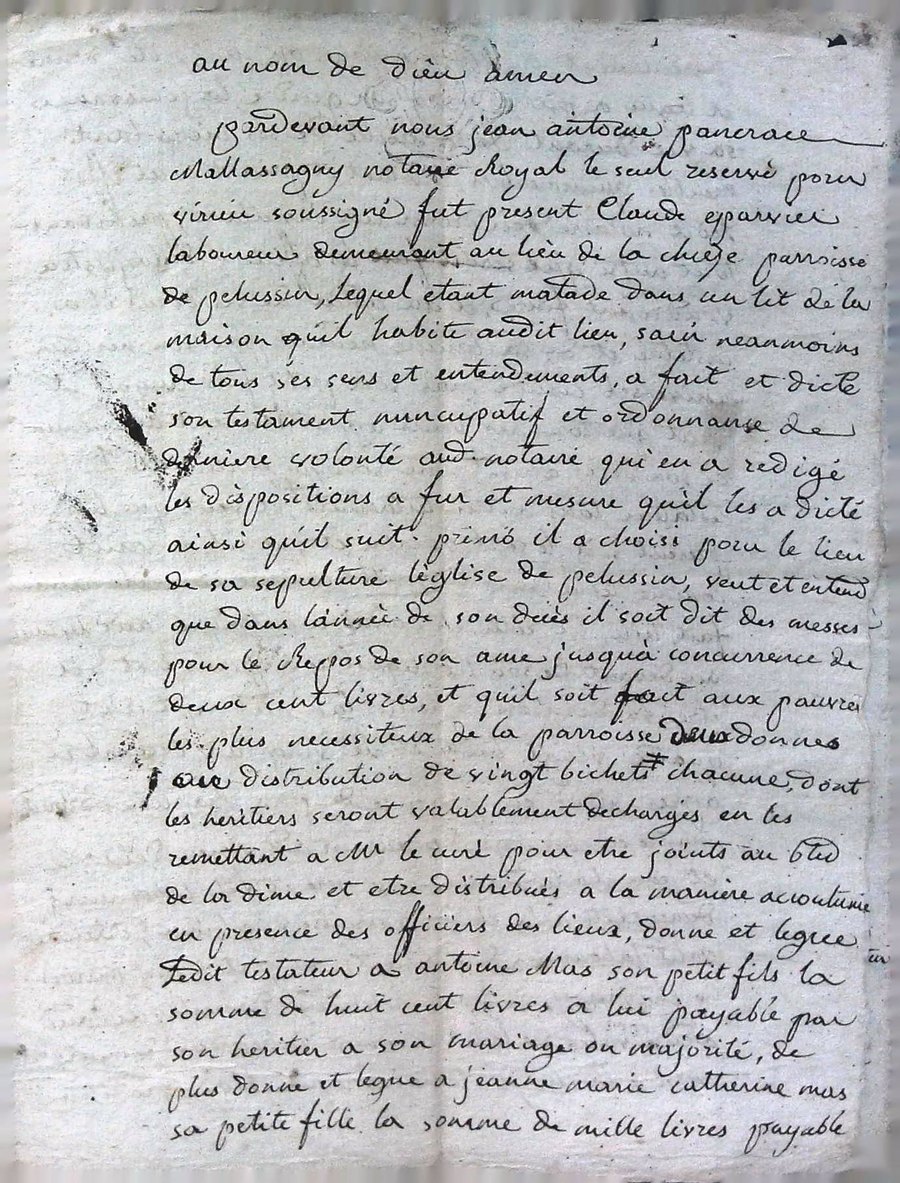 au nom de dieu amen
pardevant nous jean antoine pancrace
Mallassagny notaire Royal le seul reservé pour
virieu soussigné fut present Claude eparvier
laboureur demeurant au lieu de la chieze parroisse
de pelussin, Lequel etant malade dans un lit de la
maison quil habite audit lieu, sain neanmoins
de tous ses sens et entendements, a fait et dicté
son testament nuncupatif et ordonnance de
derniere volonté aud. notaire qui en a redigé
les dispositions a fur et mesure quil les a dicté
ainsi quil suit. primò il a choisi pour le lieu
de sa sepulture léglise de pelussin, veut et entend
que dans lánnée de son decès il soit dit des messes
pour le Repos de son ame jusquà concurrence de
deux cent livres, et quil soit fait aux pauvres
les plus necessiteux de la parroisse deux donnes
ou distribution de vingt bichets # chacune, dont
les heritiers seront valablement dechargés en les
remettant a Mr le curé pour etre joints au bled
de la dime et etre distribués a la maniere accoutumée
en presence des officiers des lieux, donne et legue
Ledit testateur a antoine Mas son petit fils la
somme de huit cent livres a lui payable par
son heritier a son mariage ou majorité, de
plus donne et legue a jeanne marie catherine mas
sa petite fille la somme de mille livres payable